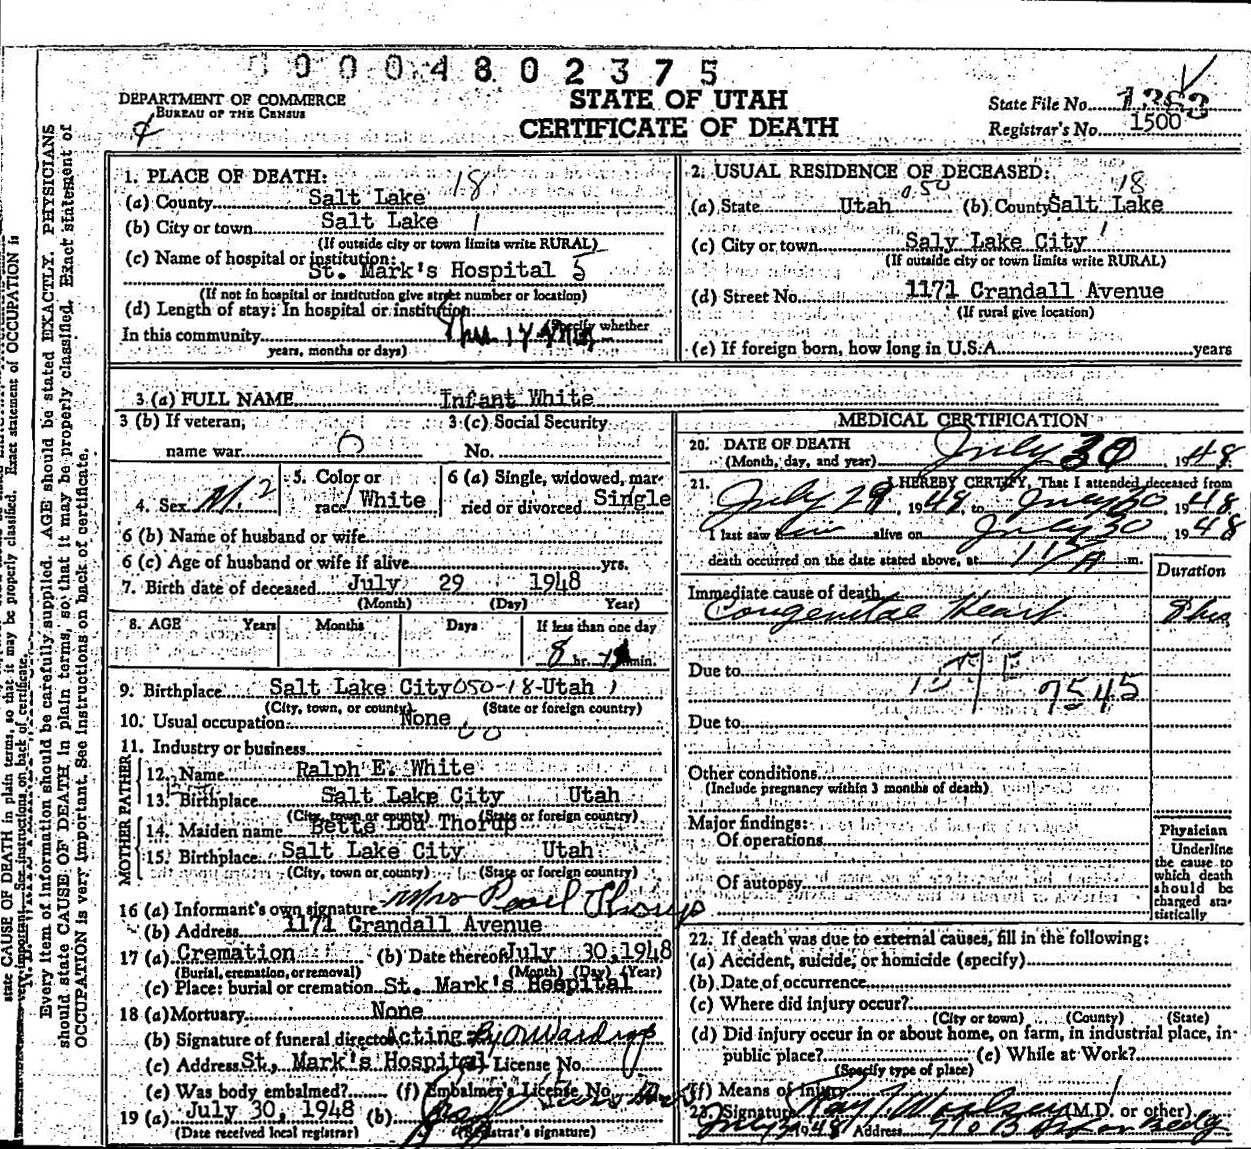 0 0 0 4 8 0 2 3 7 5
DEPARTMENT OF COMMERCE
BUREAU OF THE CENSUS
STATE OF UTAH
CERTIFICATE OF DEATH
State File No.
Registrar's No. 1500
1. PLACE OF DEATH: 18
(a) County Salt Lake
(b) City or town Salt Lake 1
(If outside city or town limits write RURAL)
(c) Name of hospital or institution:
St. Mark's Hospital 5
(If not in hospital or institution give street number or location)
(d) Length of stay: In hospital or institution
(Specify whether
In this community
years, months or days)
2. USUAL RESIDENCE OF DECEASED:
050 18
(a) State Utah (b) County Salt Lake
(c) City or town Saly Lake City 1
(If outside city or town limits write RURAL)
(d) Street No. 1171 Crandall Avenue
(If rural give location)
(e) If foreign born, how long in U.S.A. years
3 (a) FULL NAME Infant White
3 (b) If veteran,
name war 0
3 (c) Social Security
No.
4. Sex M. 2
5. Color or
race White
6 (a) Single, widowed, mar-
ried or divorced Single
6 (b) Name of husband or wife
6 (c) Age of husband or wife if alive yrs.
7. Birth date of deceased July 29 1948
(Month) (Day) Year)
8. AGE Years Months Days If less than one day
8 hr. min.
9. Birthplace Salt Lake City 050-18-Utah 1
(City, town, or county) (State or foreign country)
10. Usual occupation None
11. Industry or business
FATHER
12. Name Ralph E. White
13. Birthplace Salt Lake City Utah
(City, town or county) (State or foreign country)
MOTHER
14. Maiden name Bette Lou Thorup
15. Birthplace Salt Lake City Utah
(City, town or county) (State or foreign country)
16 (a) Informant's own signature Mrs Pearl Thorup
(b) Address 1171 Crandall Avenue
17 (a) Cremation (b) Date thereof July 30, 1948
(Burial, cremation, or removal) (Month) (Day) (Year)
(c) Place: burial or cremation St. Mark's Hospital
18 (a) Mortuary None
(b) Signature of funeral director Acting
(c) Address St. Mark's Hospital (d) License No.
(e) Was body embalmed? (f) Embalmer's License No.
19 (a) July 30, 1948 (b)
(Date received local registrar) (Registrar's signature)
MEDICAL CERTIFICATION
20. DATE OF DEATH
(Month, day, and year) July 30, 1948
21. I HEREBY CERTIFY, That I attended deceased from
July 29, 1948 to July 30, 1948
I last saw him alive on July 30 1948
death occurred on the date stated above, at m.
Duration
Immediate cause of death
Congenital Heart 8 hrs
Due to
7545
Due to
Other conditions
(Include pregnancy within 3 months of death)
Major findings:
Of operations
Of autopsy
Physician
Underline
the cause to
which death
should be
charged sta-
tistically
22. If death was due to external causes, fill in the following:
(a) Accident, suicide, or homicide (specify)
(b) Date of occurrence
(c) Where did injury occur?
(City or town) (County) (State)
(d) Did injury occur in or about home, on farm, in industrial place, in-
public place? (e) While at Work?
(Specify type of place)
(f) Means of injury
23. Signature (M.D. or other)
July 30 1948 Address
Every item of information should be carefully supplied. AGE should be stated EXACTLY. PHYSICIANS
should state CAUSE OF DEATH in plain terms, so that it may be properly classified. Exact statement of
OCCUPATION is very important. See instructions on back of certificate.
state CAUSE OF DEATH in plain terms, so that it may be properly classified. Exact statement of OCCUPATION is
very important. See instructions on back of certificate.